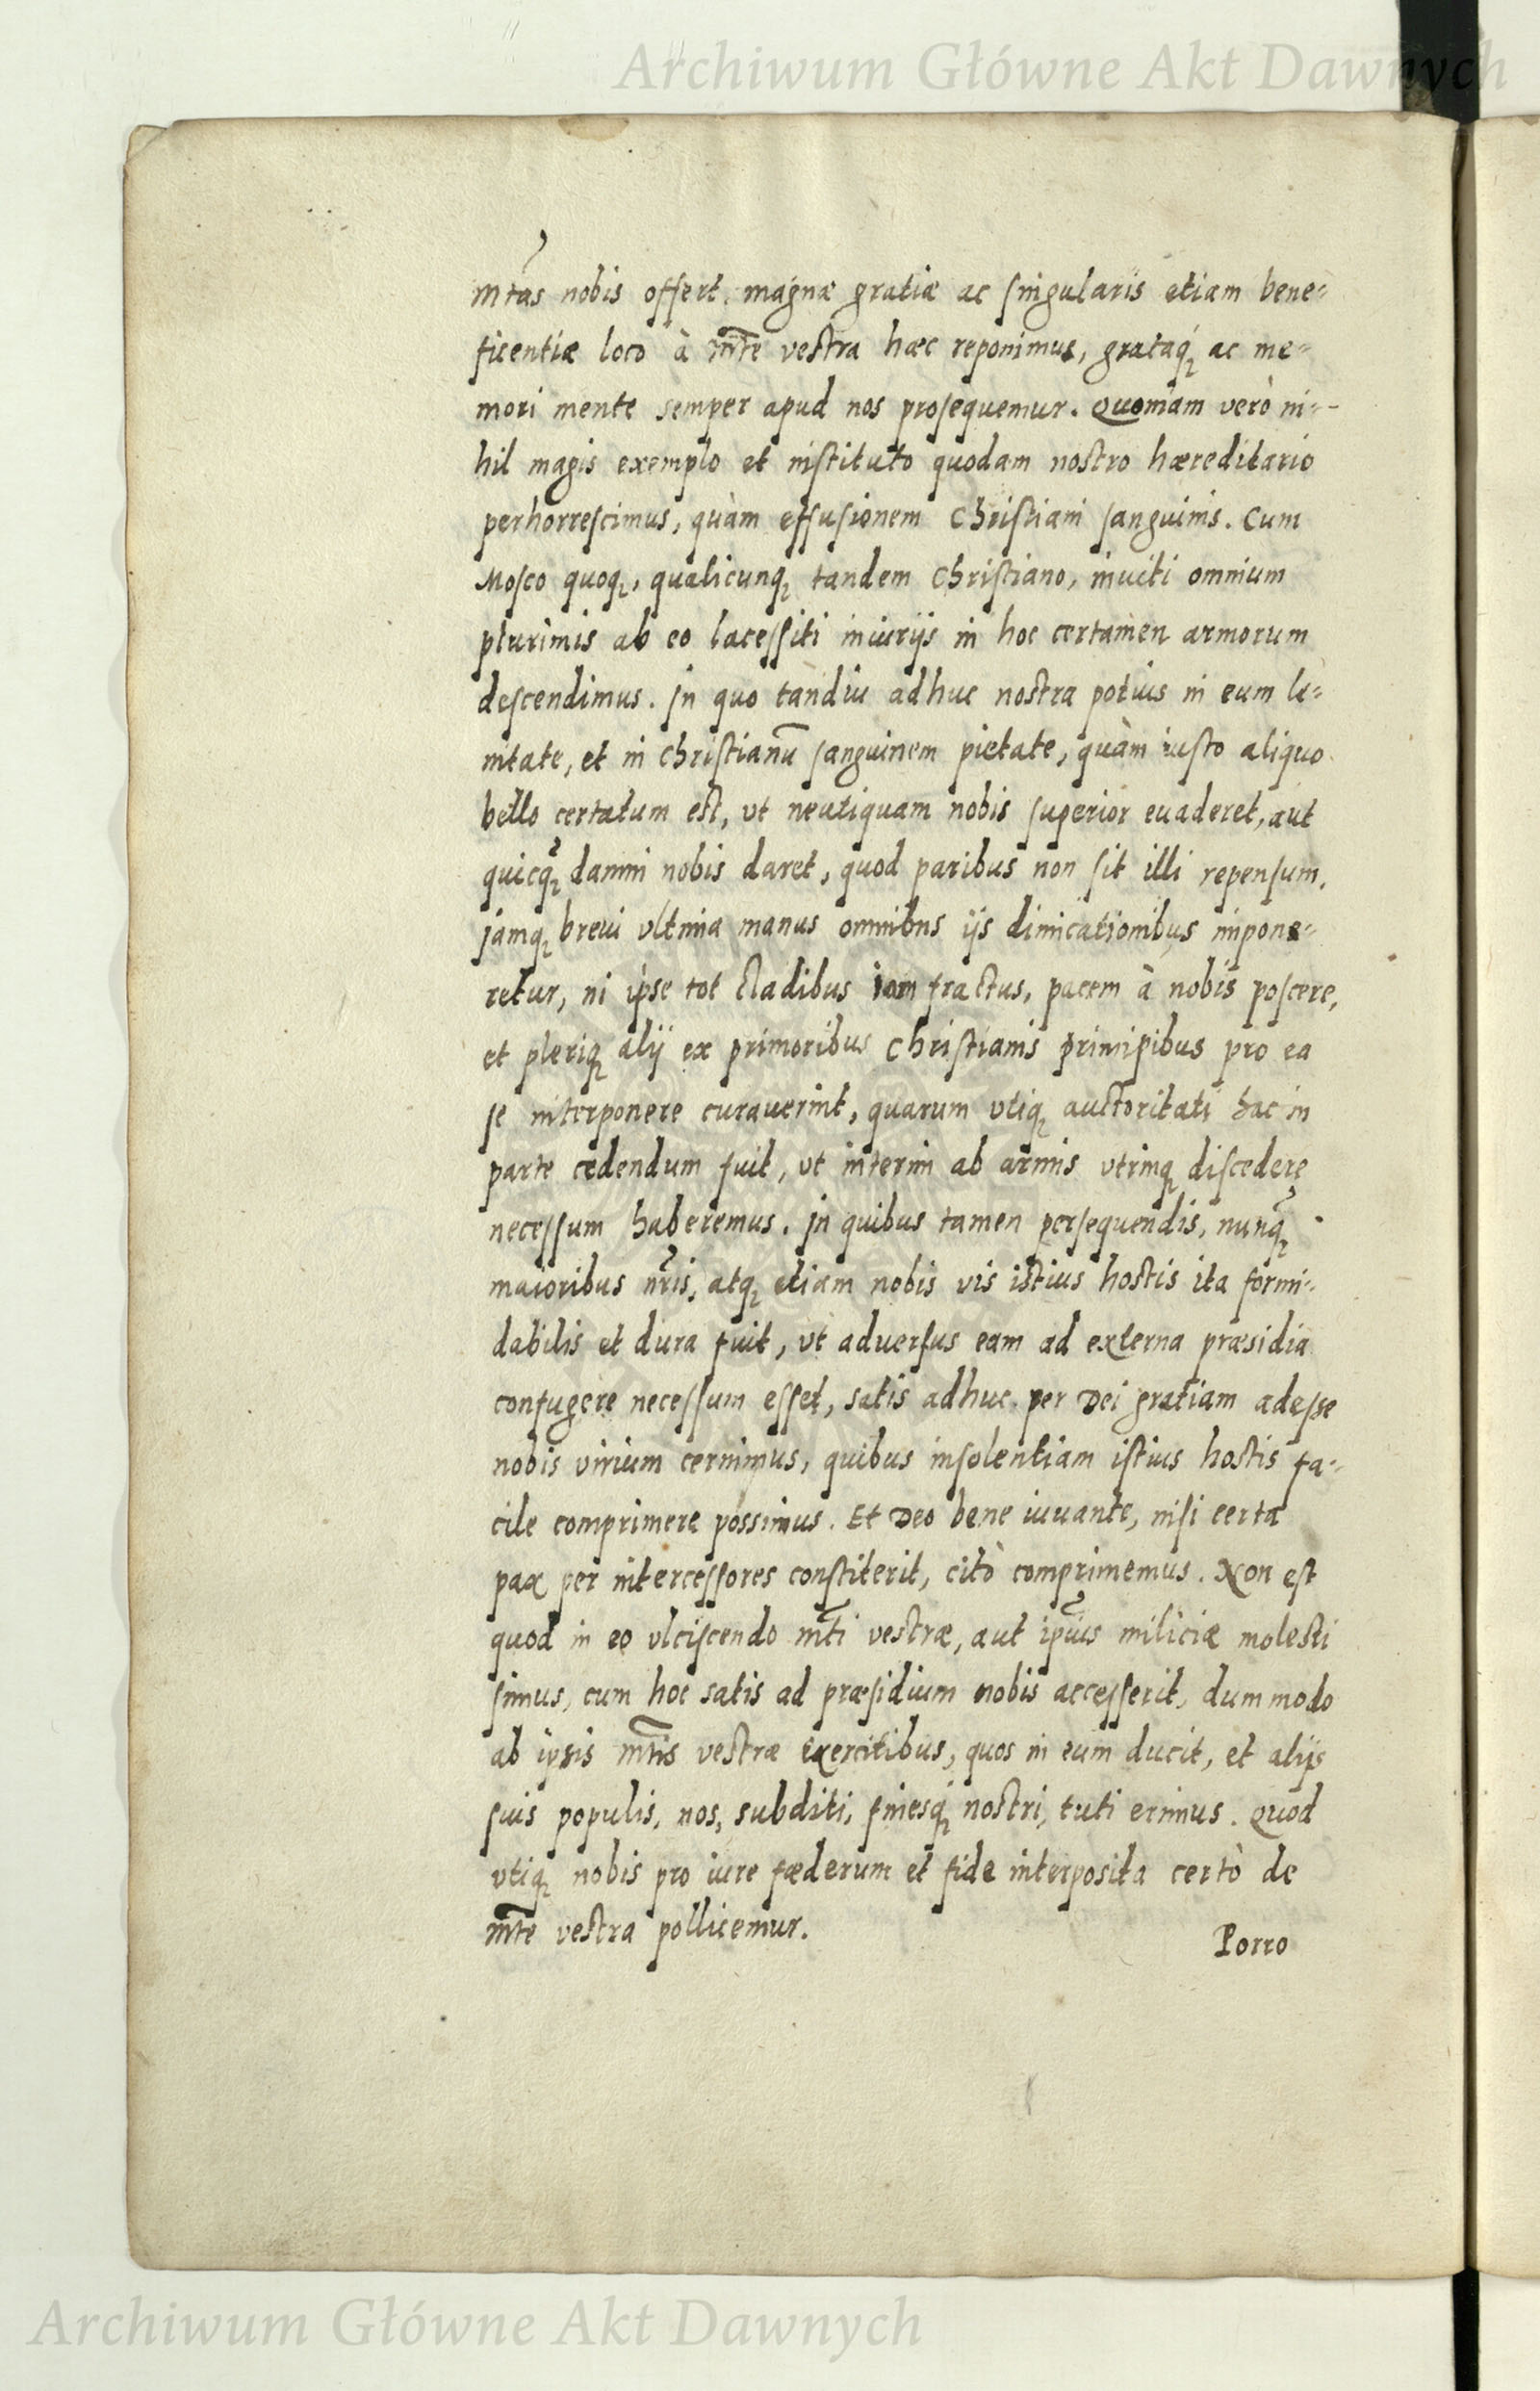 Archiwum Główne Akt Dawnych
Mtas nobis offert. magnæ gratiæ ac singularis etiam bene=
ficentiæ loco à Mte vestra hæc reponimus, grataq́; ac me=
mori mente semper apud nos prosequemur. Quoniam verò ni=
hil magis exemplo et instituto quodam nostro hæreditario
perhorrescimus, quàm effusionem Christiani sanguinis. Cum
Mosco quoq;, qualicunq; tandem Christiano, inuiti omnium
plurimis ab eo lacessiti iniurijs in hoc certamen armorum
descendimus. In quo tandiu adhuc nostra potius in eum le=
nitate, et in Christianū sanguinem pietate, quàm iusto aliquo
bello certatum est, vt neutiquam nobis superior euaderet, aut
quicq̃; damni nobis daret, quod paribus non sit illi repensum,
jamq; breui vltima manus omnibus ijs dimicationibus impone=
retur, ni ipse tot cladibus iam fractus, pacem à nobis poscere,
et pleriq; alij ex primoribus Christianis principibus pro ea
se interponere curauerint, quarum vtiq; auctoritati hac in
parte cedendum fuit, vt interim ab armis vtrinq; discedere
necessum haberemus. In quibus tamen persequendis, nunq̃;
maioribus nr̃is, atq; etiam nobis vis istius hostis ita formi=
dabilis et dura fuit, vt aduersus eam ad externa præsidia
confugere necessum esset, satis adhuc per Dei gratiam adesse
nobis virium cernimus, quibus insolentiam istius hostis fa=
cile comprimere possimus. Et Deo bene iuuante, nisi certa
pax per intercessores constiterit, citò comprimemus. Non est
quod in eo vlciscendo Mti vestræ, aut ip̃ius miliciæ molesti
simus, cum hoc satis ad præsidium nobis accesserit, dummodo
ab ipsis Mtis vestræ exercitibus, quos in eum ducit, et alijs
suis populis, nos, subditi, finesq́; nostri, tuti erimus. Quod
vtiq; nobis pro iure fæderum et fide interposita certò de
Mte vestra pollicemur.
Porro
Archiwum Główne Akt Dawnych